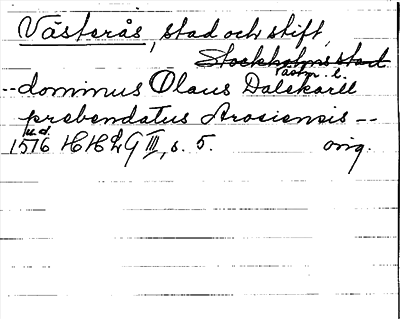 Västerås, stad och stift,
Stockholms stad
Västm. l.
--dominus Olaus Dalekarll
prebendatus Arosiensis --
u.d.
1576 HH2G III, s. 5. orig.